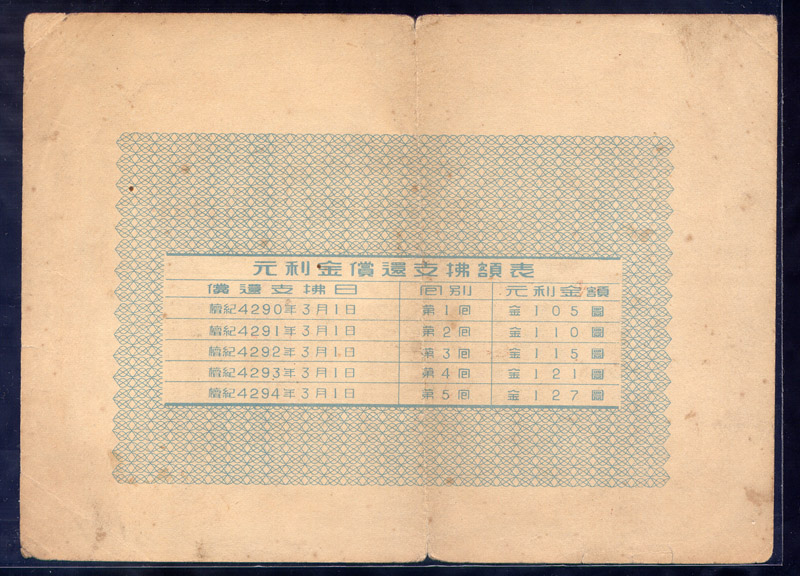 元利金償還支拂額表
償還支拂日 回別 元利金額
檀紀4290年3月1日 第1回 金105圜
檀紀4291年3月1日 第2回 金110圜
檀紀4292年3月1日 第3回 金115圜
檀紀4293年3月1日 第4回 金121圜
檀紀4294年3月1日 第5回 金127圜